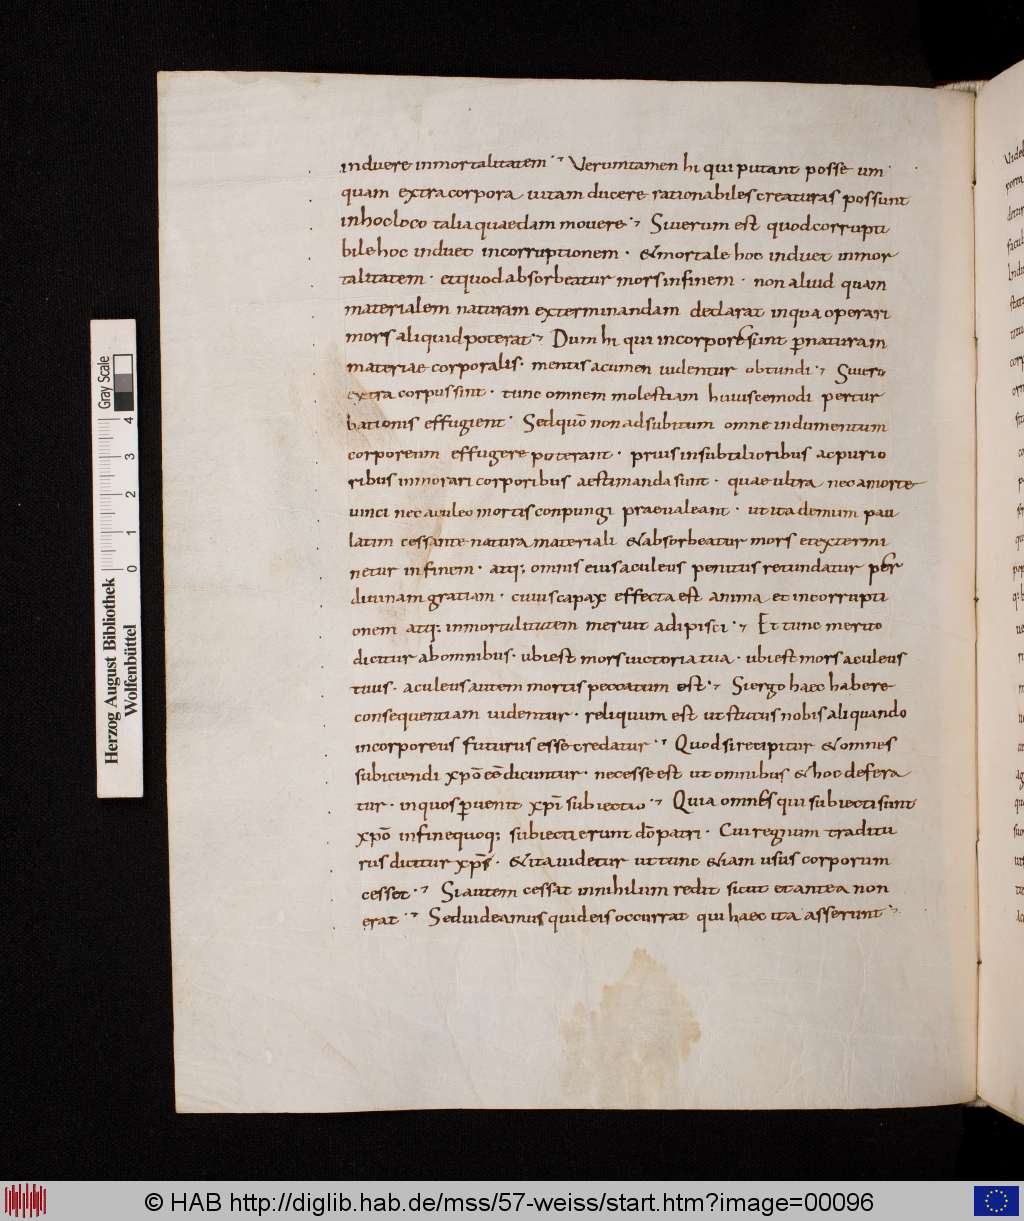 induere inmortalitatem · Veruntamen hi qui putant posse um
quam extra corpora uitam ducere rationabiles creaturas possunt
in hoc loco talia quaedam mouere · Si uerum est quod corrupti
bile hoc induet incorruptionem · & mortale hoc induet inmor
talitatem · et quod absorbeatur mors in finem · non aliud quam
materialem naturam exterminandam declarat in qua operari
mors aliquid poterat · Dum hi qui in corpore sunt p̄ naturam
materiae corporalis · mentis acumen uidentur obtundi · Si uero
extra corpus sint · tunc omnem molestiam huiuscemodi pertur
bationis effugient · Sed quō non ad subitum omne indumentum
corporeum effugere poterant · prius in subtilioribus ac purio
ribus inmorari corporibus aestimanda sunt · quae ultra nec a morte
uinci nec aculeo mortis conpungi praeualeant · ut ita demum pau
latim cessante natura materiali & absorbeatur mors et extermi
netur in finem · atq; omnis eius aculeus penitus retundatur per
diuinam gratiam · cuius capax effecta est anima et incorrupti
onem atq; inmortalitatem meruit adipisci · Et tunc merito
dicitur ab omnibus · ubi est mors uictoria tua · ubi est mors aculeus
tuus · aculeus autem mortis peccatum est · Si ergo haec habere
consequentiam uidentur · reliquum est ut status nobis aliquando
incorporeus futurus esse credatur · Quod si recipitur & omnes
subiciendi xp̄o ēe dicuntur · necesse est ut omnibus & hoc defera
tur · in quos p̄uenit xp̄i subiectio · Quia omnes qui subiecti sunt
xp̄o in fine quoq; subiecti erunt dō patri · Cui regnum traditu
rus dicitur xp̄s · & ita uidetur ut tunc &iam usus corporum
cesset · Si autem cessat in nihilum redit sicut et antea non
erat · Sed uideamus quid eis occurrat qui haec ita asserunt ·
Herzog August Bibliothek
Wolfenbüttel
Gray Scale
0 1 2 3 4
© HAB http://diglib.hab.de/mss/57-weiss/start.htm?image=00096